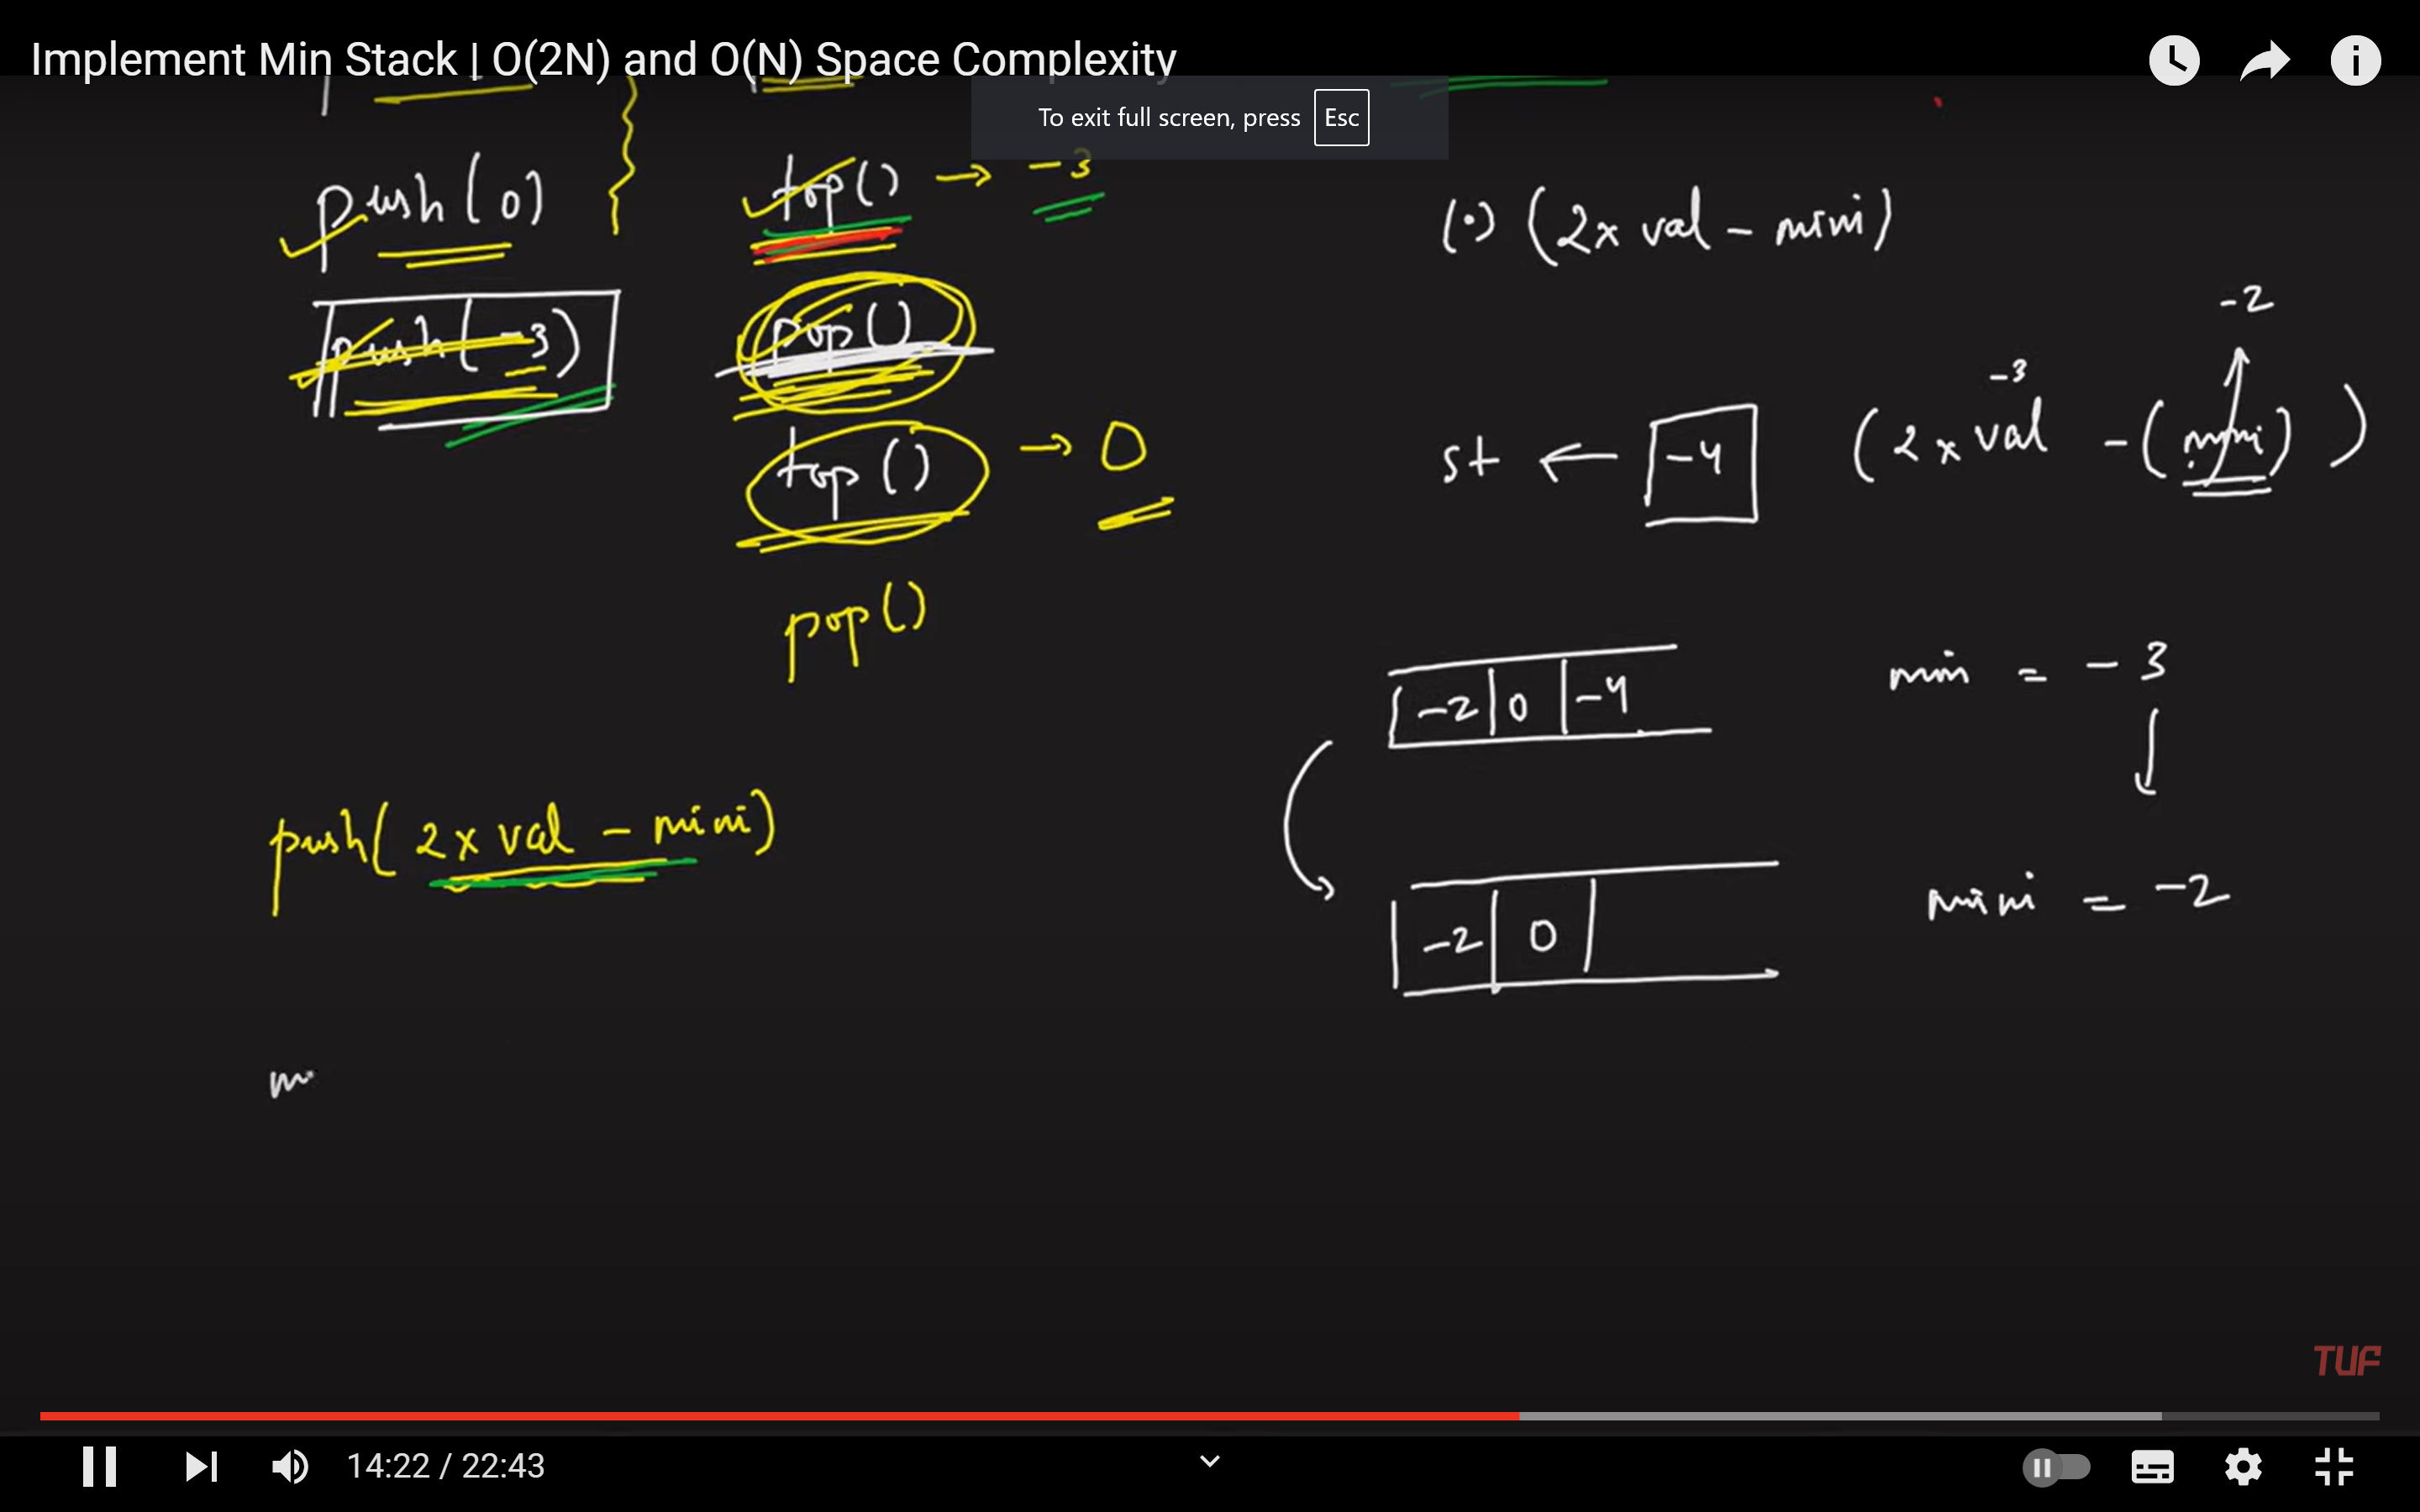 Implement Min Stack | O(2N) and O(N) Space Complexity
To exit full screen, press Esc
push(0)
push(-3)
top() → -3
pop()
top() → 0
pop()
push(2x val - mini)
(·) (2x val - mini)
-2
-3
st ← -4 (2x val - (mini))
-2 0 -4
min = -3
-2 0
mini = -2
m
TUF
14:22 / 22:43